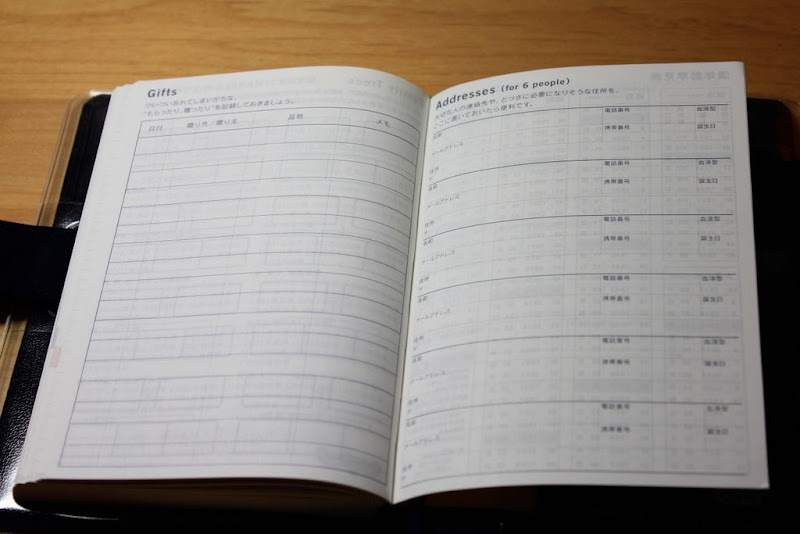 Gifts
ついつい忘れてしまいがちな、
"もらったり、贈ったり"を記録しておきましょう。
月日 贈り先／贈り主 品物 メモ
Addresses (for 6 people)
大切な人の連絡先や、とっさに必要になりそうな住所を、
ここに書いておいたら便利です。
名前 電話番号 血液型
メールアドレス 携帯番号 誕生日
住所
〒
名前 電話番号 血液型
メールアドレス 携帯番号 誕生日
住所
〒
名前 電話番号 血液型
メールアドレス 携帯番号 誕生日
住所
〒
名前 電話番号 血液型
メールアドレス 携帯番号 誕生日
住所
〒
名前 電話番号 血液型
メールアドレス 携帯番号 誕生日
住所
〒
名前 電話番号 血液型
メールアドレス 携帯番号 誕生日
住所
〒